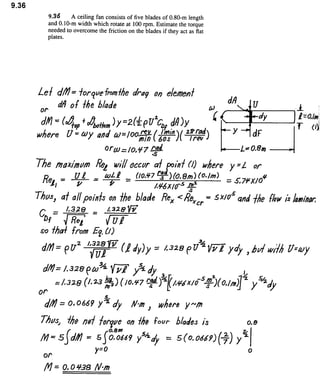 9.36
9.36 A ceiling fan consists of five blades of 0.80-m length
and 0.10-m width which rotate at 100 rpm. Estimate the torque
needed to overcome the friction on the blades if they act as flat
plates.
Let dM = torque from the drag on element
dA of the blade
or
dM = (τtop + τbottom) y = 2(½ρU²C_Df dA) y
where U = ωy and ω = 100 rev/min (1 min/60 s)(2π rad/1 rev)
or ω = 10.47 rad/s
dA
U
ω
dy
y
dF
L = 0.8m
l = 0.1m
(1)
The maximum Re_l will occur at point (1) where y = L or
Re_l1 = Ul/ν = ωLl/ν = (10.47 rad/s)(0.8m)(0.1m) / 1.46×10⁻⁵ m²/s = 5.74×10⁴
Thus, at all points on the blade Re_x < Re_xcr = 5×10⁵ and the flow is laminar.
C_Df = 1.328/√Re_l = 1.328√ν/√Ul
so that from Eq.(1)
dM = ρU² 1.328√ν/√Ul (l dy) y = 1.328 ρ U^3/2 √νl y dy , but with U=ωy
dM = 1.328 ρ ω^3/2 √νl y^5/2 dy
= 1.328 (1.23 kg/m³)(10.47 rad/s)^3/2 [(1.46×10⁻⁵ m²/s)(0.1m)]^1/2 y^5/2 dy
or
dM = 0.0669 y^5/2 dy N·m , where y~m
Thus, the net torque on the four blades is
M = 5∫dM = 5 ∫ y=0 0.8m 0.0669 y^5/2 dy = 5(0.0669)(2/7) y^7/2 | 0 0.8
or
M = 0.0438 N·m